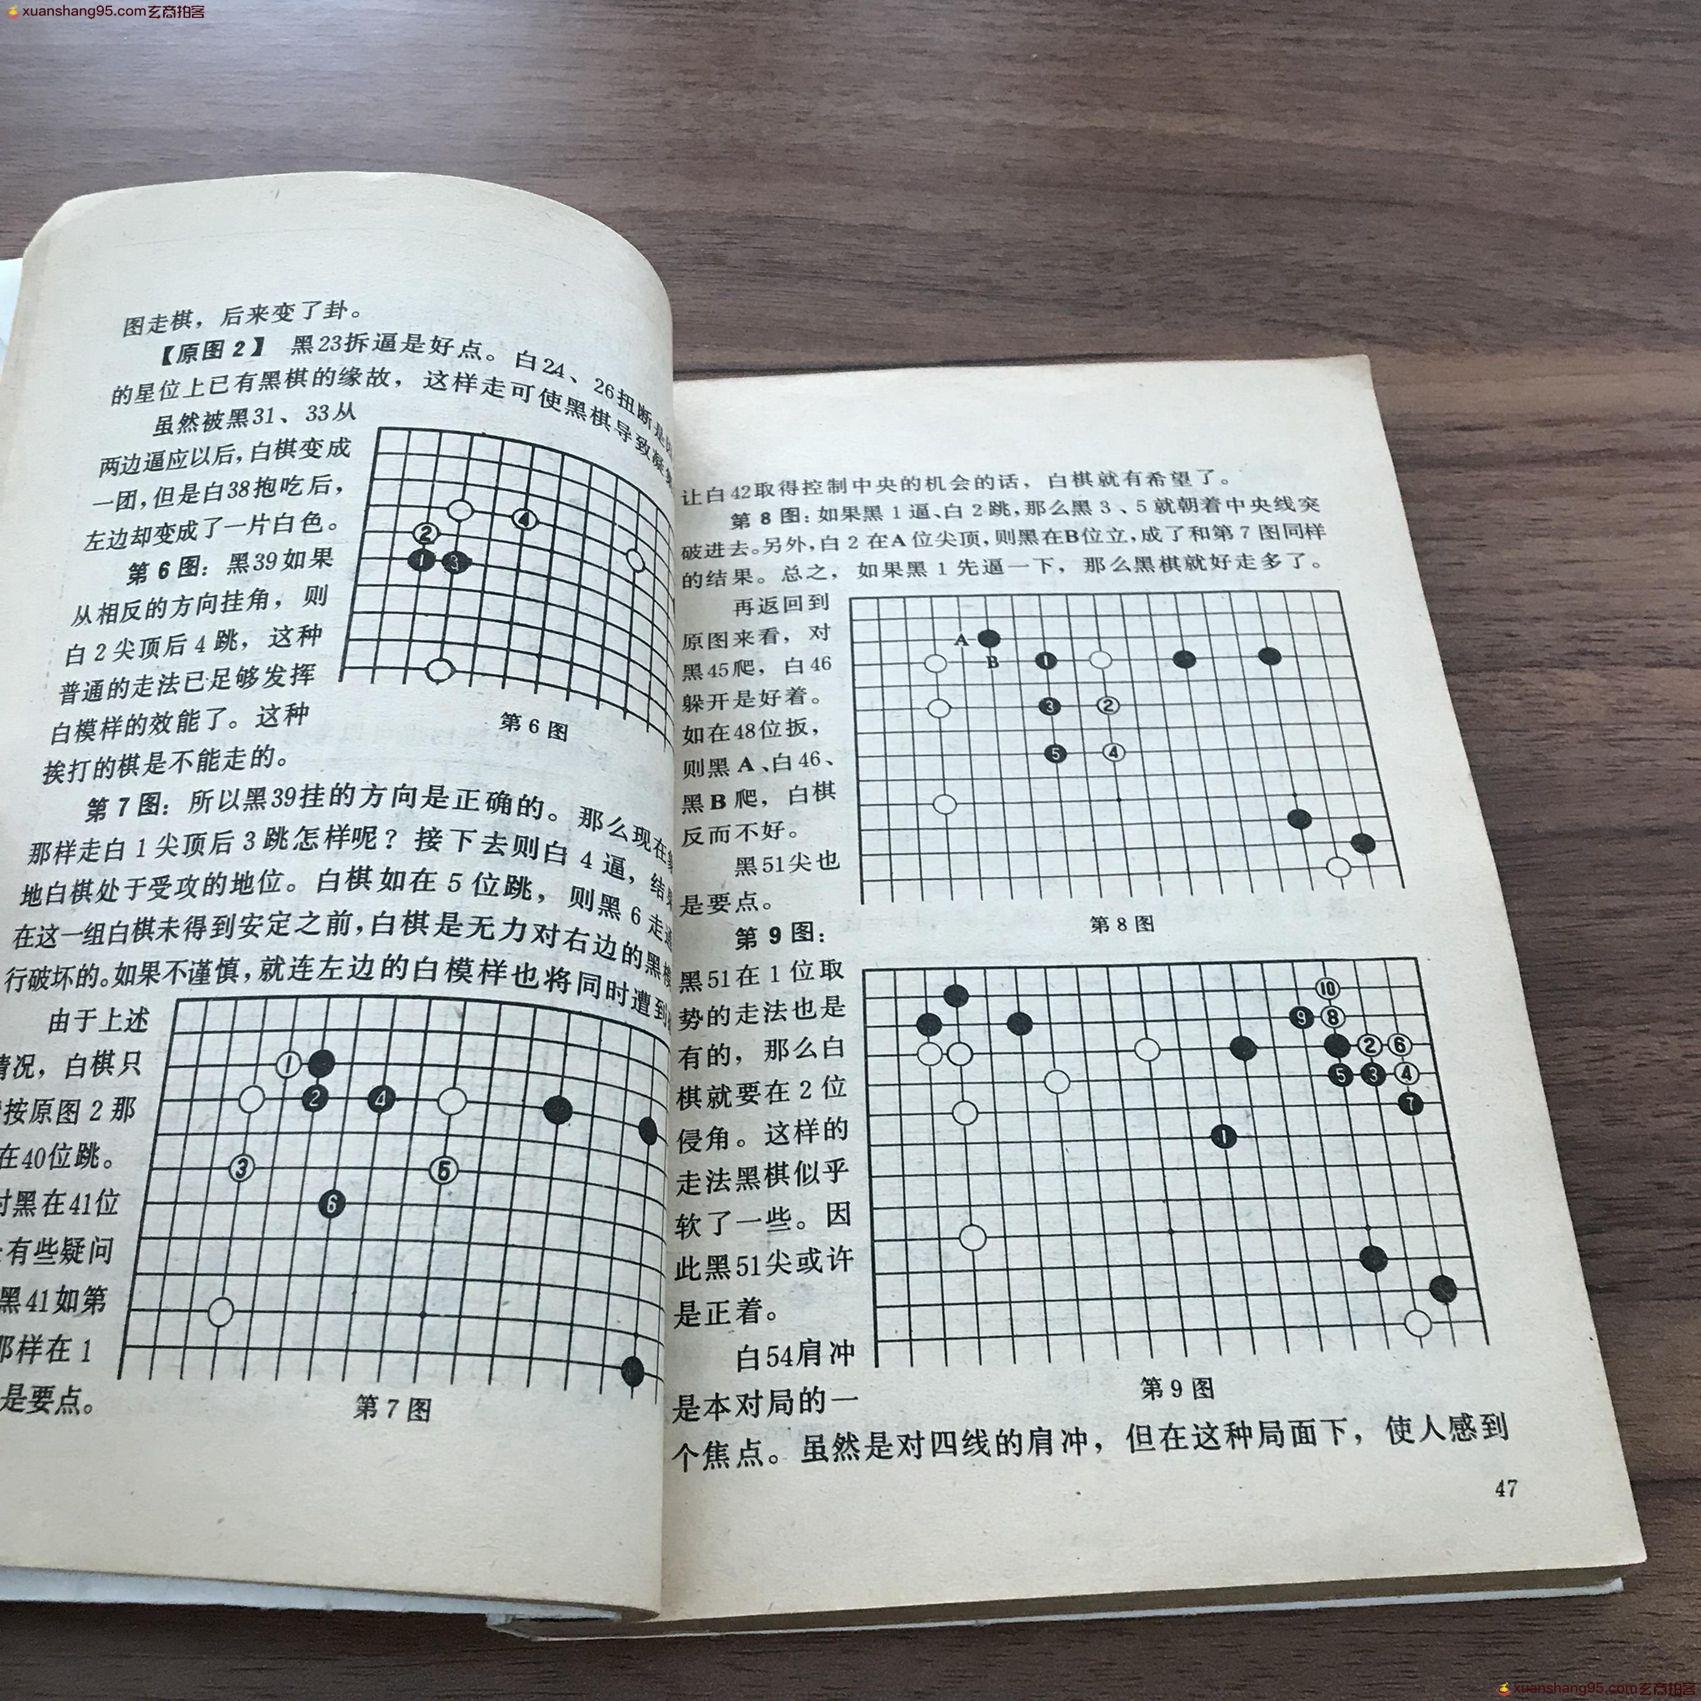 xuanshang95.com玄商拍客
图走棋，后来变了卦。
【原图2】 黑23拆逼是好点。白24、26扭断是
的星位上已有黑棋的缘故，这样走可使黑棋导致凝
虽然被黑31、33从
两边逼应以后，白棋变成
一团，但是白38抱吃后，
左边却变成了一片白色。
第6图：黑39如果
从相反的方向挂角，则
白2尖顶后4跳，这种
普通的走法已足够发挥
白模样的效能了。这种
挨打的棋是不能走的。
2
4
1
3
第6图
第7图：所以黑39挂的方向是正确的。那么现在
那样走白1尖顶后3跳怎样呢？接下去则白4逼，结
地白棋处于受攻的地位。白棋如在5位跳，则黑6走
在这一组白棋未得到安定之前，白棋是无力对右边的黑
行破坏的。如果不谨慎，就连左边的白模样也将同时遭到
由于上述
情况，白棋只
按原图2那
在40位跳。
对黑在41位
有些疑问
黑41如第
那样在1
是要点。
1
2
4
3
5
6
第7图
让白42取得控制中央的机会的话，白棋就有希望了。
第8图：如果黑1逼、白2跳，那么黑3、5就朝着中央线突
破进去。另外，白2在A位尖顶，则黑在B位立，成了和第7图同样
的结果。总之，如果黑1先逼一下，那么黑棋就好走多了。
再返回到
原图来看，对
黑45爬，白46
躲开是好着。
如在48位扳，
则黑A、白46、
黑B爬，白棋
反而不好。
黑51尖也
是要点。
A
B
1
3
2
5
4
第8图
第9图：
黑51在1位取
势的走法也是
有的，那么白
棋就要在2位
侵角。这样的
走法黑棋似乎
软了一些。因
此黑51尖或许
是正着。
白54肩冲
是本对局的一
10
9
8
2
6
5
3
4
7
1
第9图
个焦点。虽然是对四线的肩冲，但在这种局面下，使人感到
47
xuanshang95.com玄商拍客